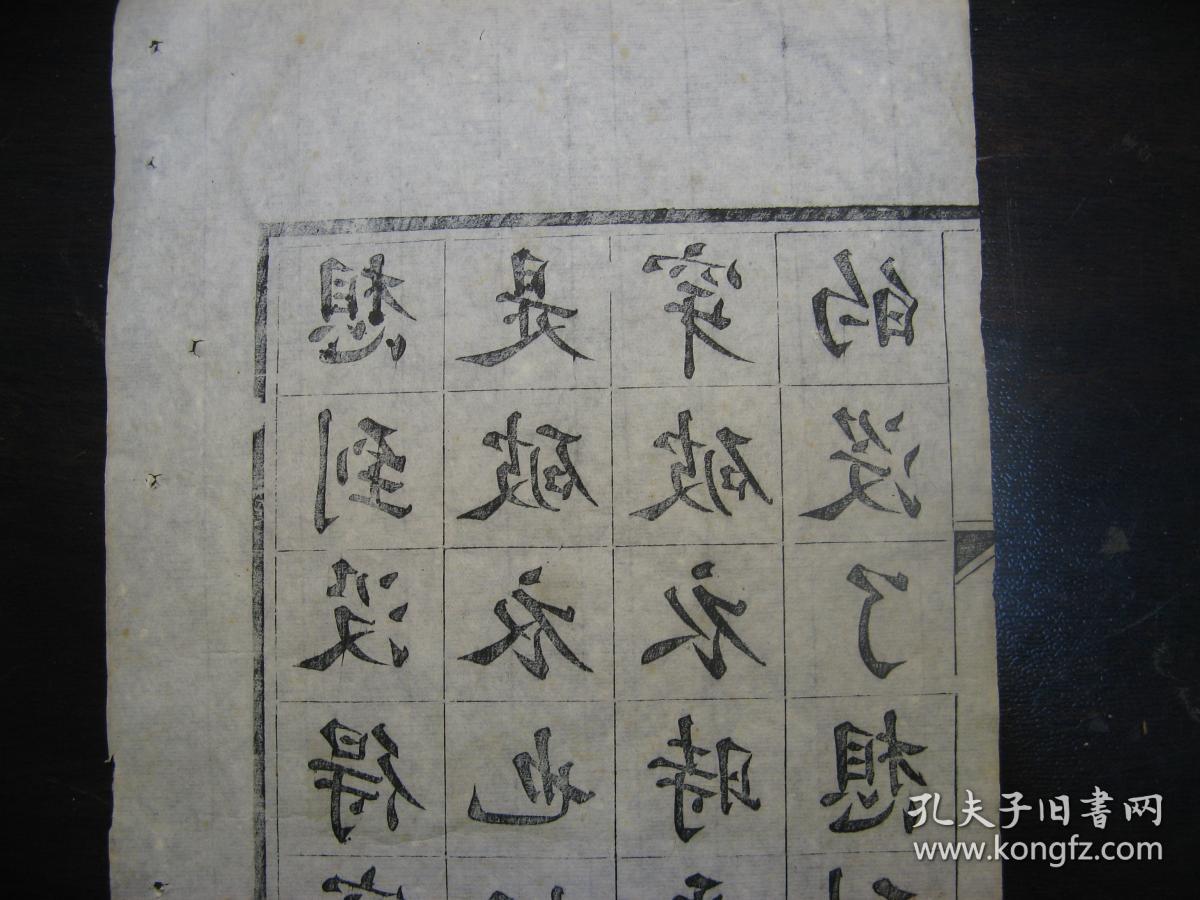 想到没得
是破衣也
穿破衣時
的没了想
孔夫子旧書网
www.kongfz.com